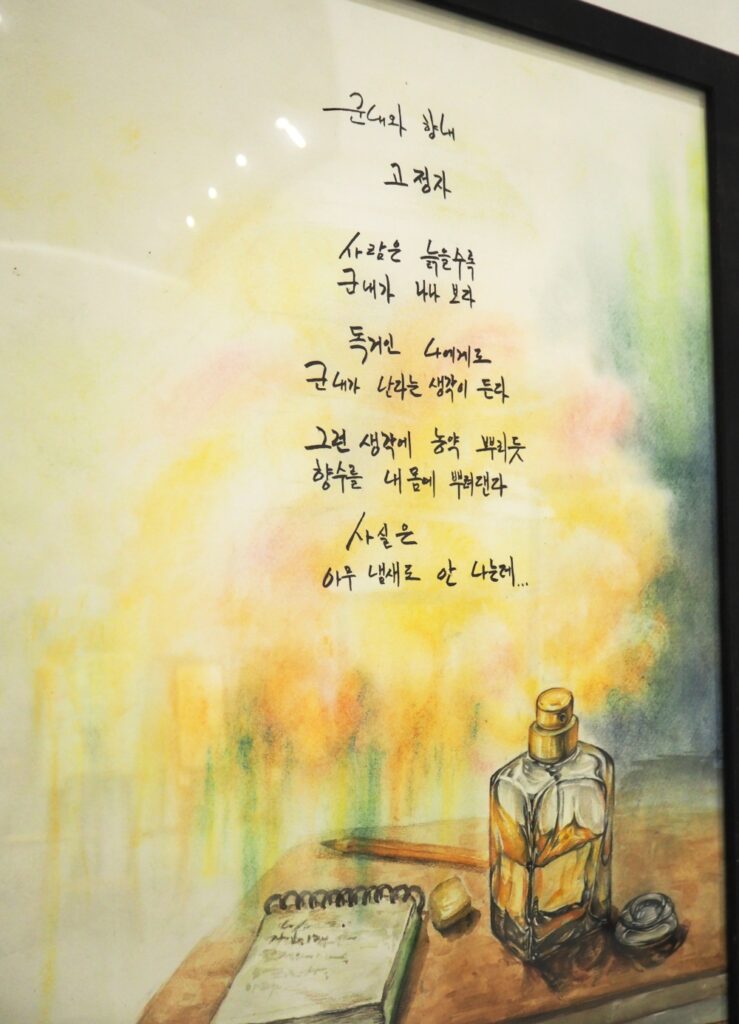 군내와 향내
고정자
사람은 늙을수록
군내가 나나 보다
독거인 나에게도
군내가 난다는 생각이 든다
그런 생각에 농약 뿌리듯
향수를 내 몸에 뿌려댄다
사실은
아무 냄새도 안 나는데...